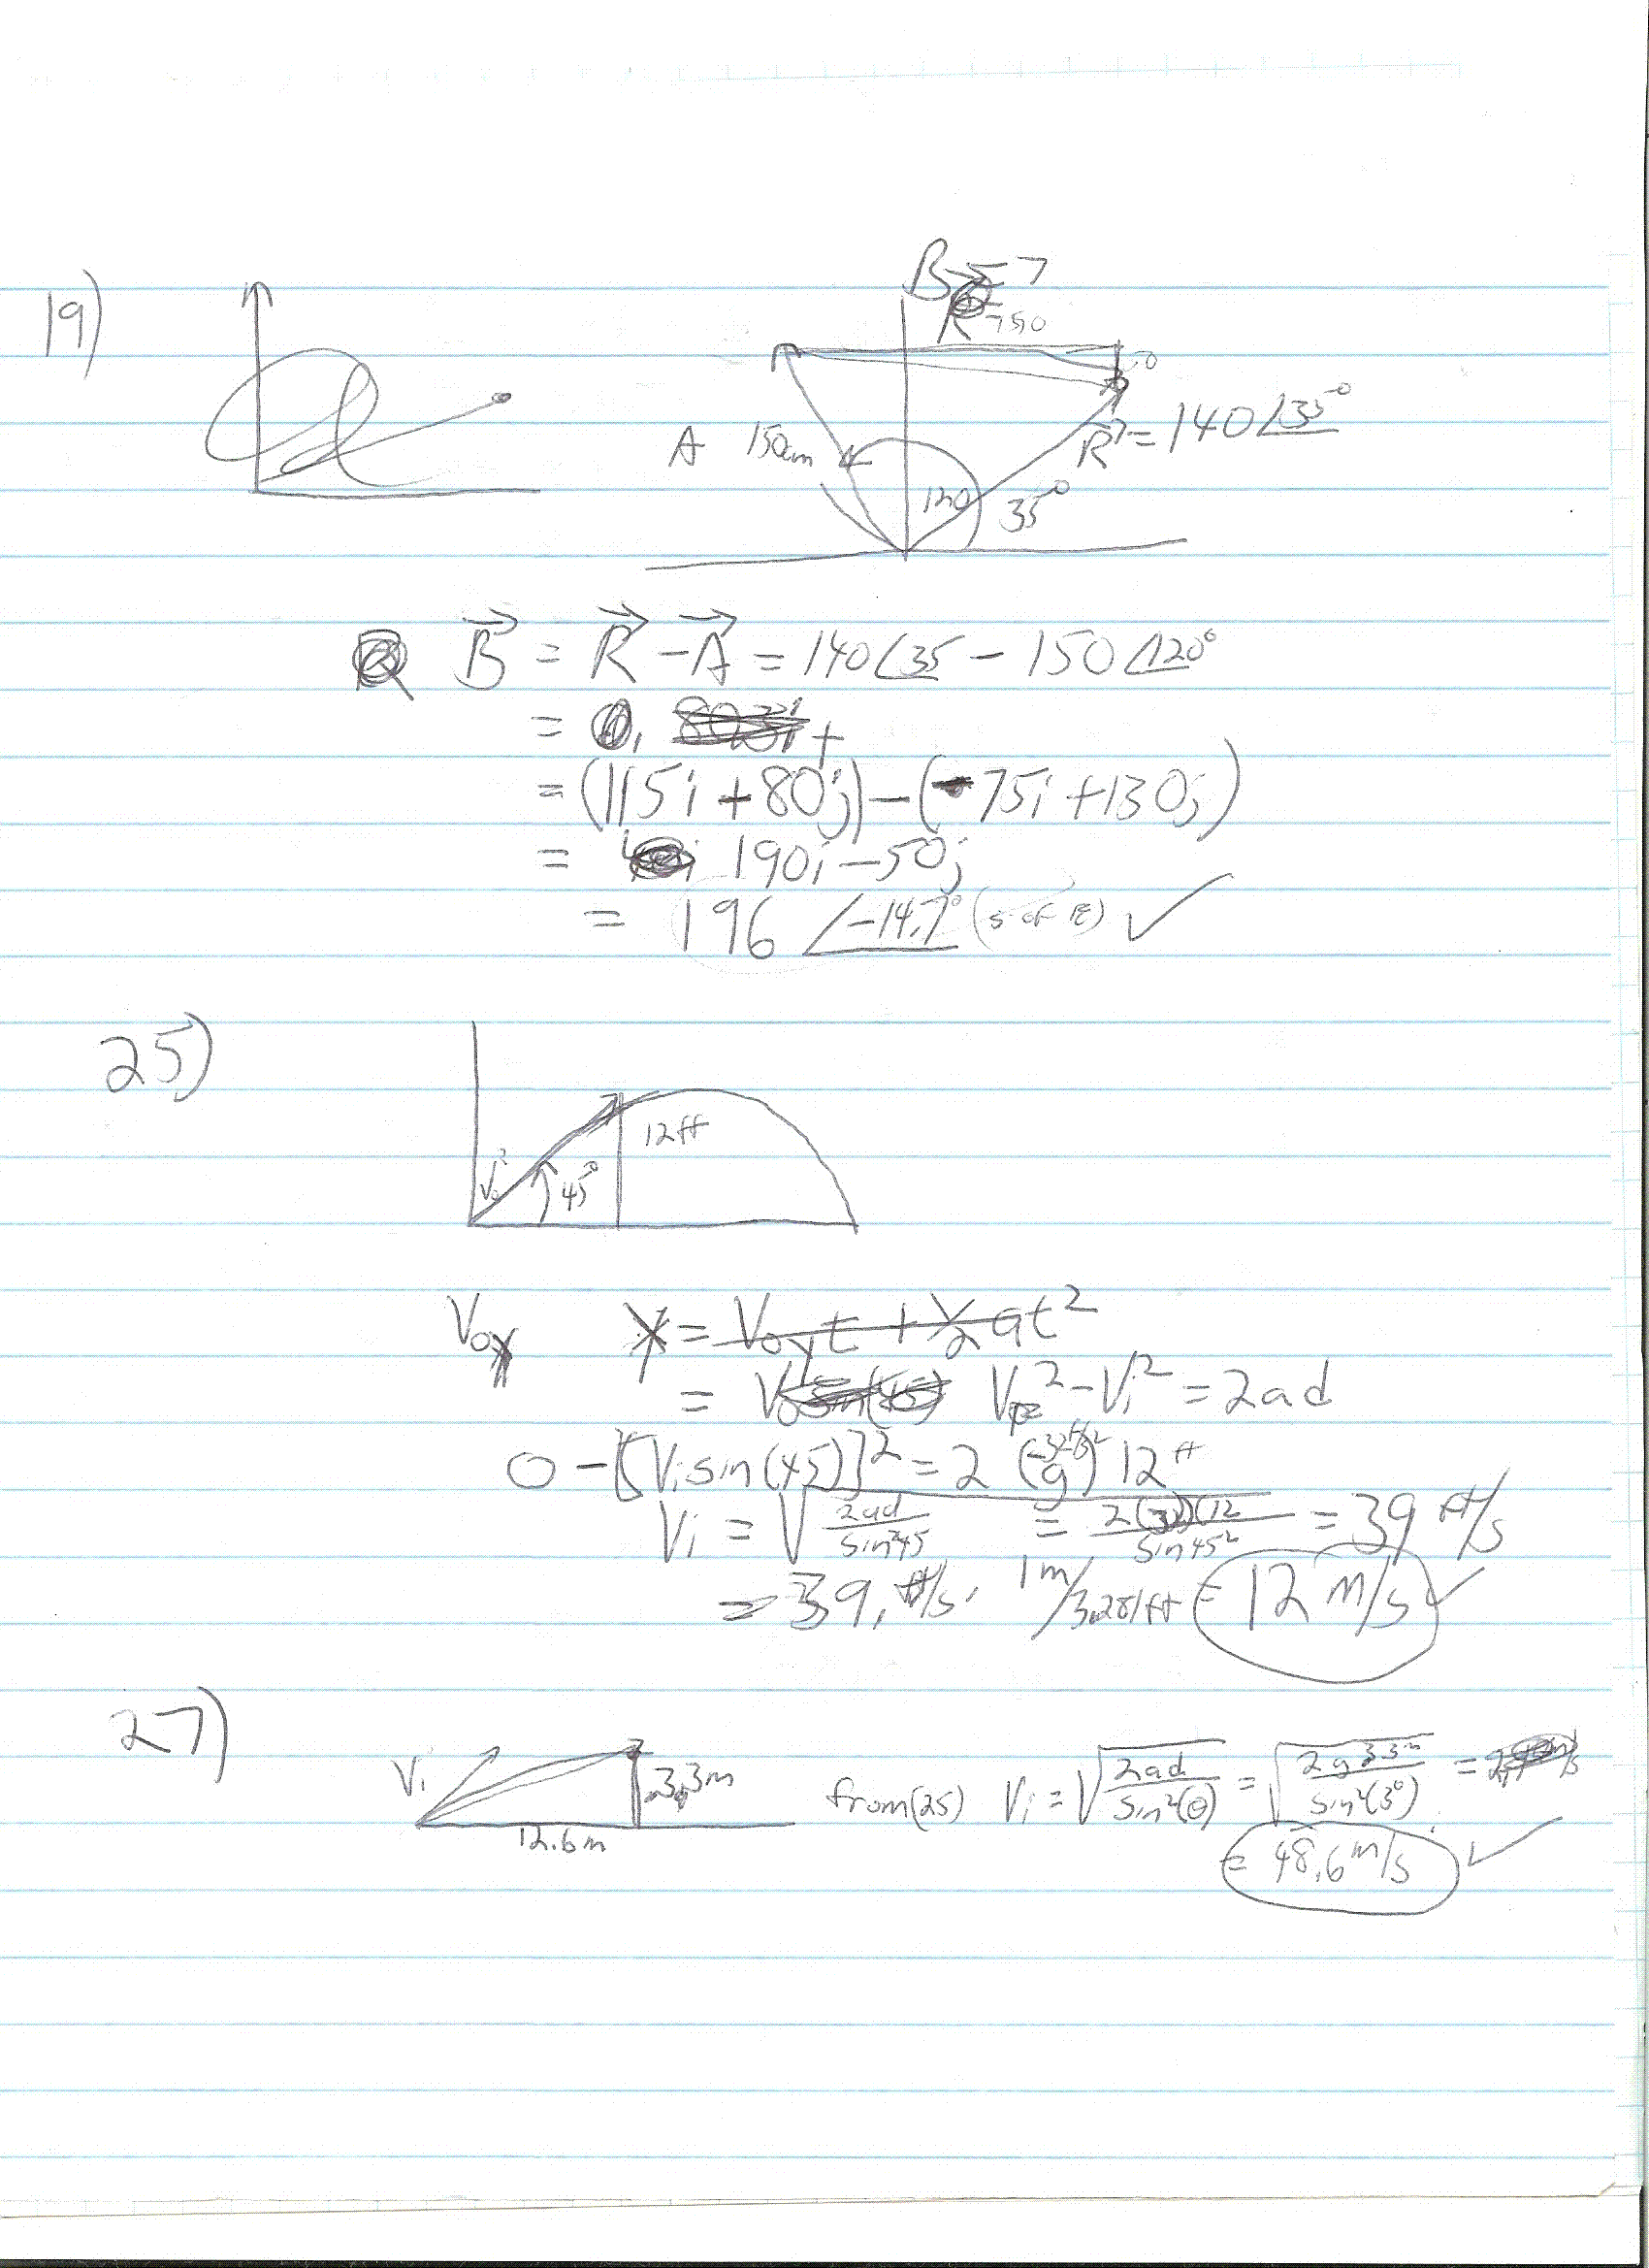 19)
B⃗ = ?
A 150cm
R⃗ = 140∠35°
120 35°
B⃗ = R⃗ - A⃗ = 140∠35 - 150∠120°
=
= (115i + 80j) - (-75i + 130j)
= 190i - 50j
= 196 ∠-14.7° (S of E) ✓
25)
12ft
V₀ 45°
V₀y y = V₀yt + 1/2 at²
= V₀ sin(45) V² - Vi² = 2ad
0 - [Vi sin(45)]² = 2 (-32ft/s²) g 12 ft
Vi = √(2ad / sin²45) = 2(32)(12 / sin45² = 39 ft/s
= 39. ft/s. 1m/3.281ft = 12 m/s ✓
27)
Vi 3.3m from(25) Vi = √(2ad / sin²(θ)) = √(2g 3.3m / sin²(3°)) =
12.6m
= 48.6 m/s ✓